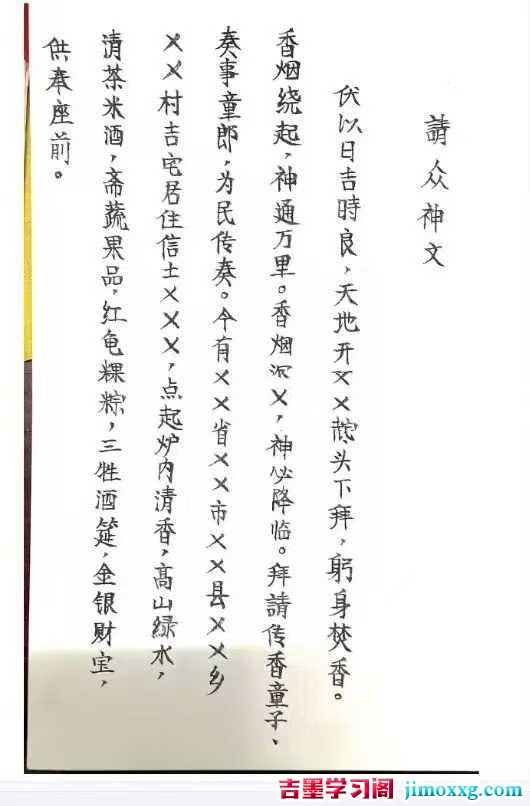 請众神文
伏以日吉時良，天地开××。头下拜，躬身焚香。
香烟绕起，神通万里。香烟沉×，神必降临。拜請传香童子、
奏事童郎，为民传奏。今有××省××市××县××乡
××村吉宅居住信士×××，点起炉内清香，高山绿水，
清茶米酒，斋蔬果品，红龟粿粽，三牲酒筵，金银财宝，
供奉座前。
吉墨学习阁 jimoxxg.com